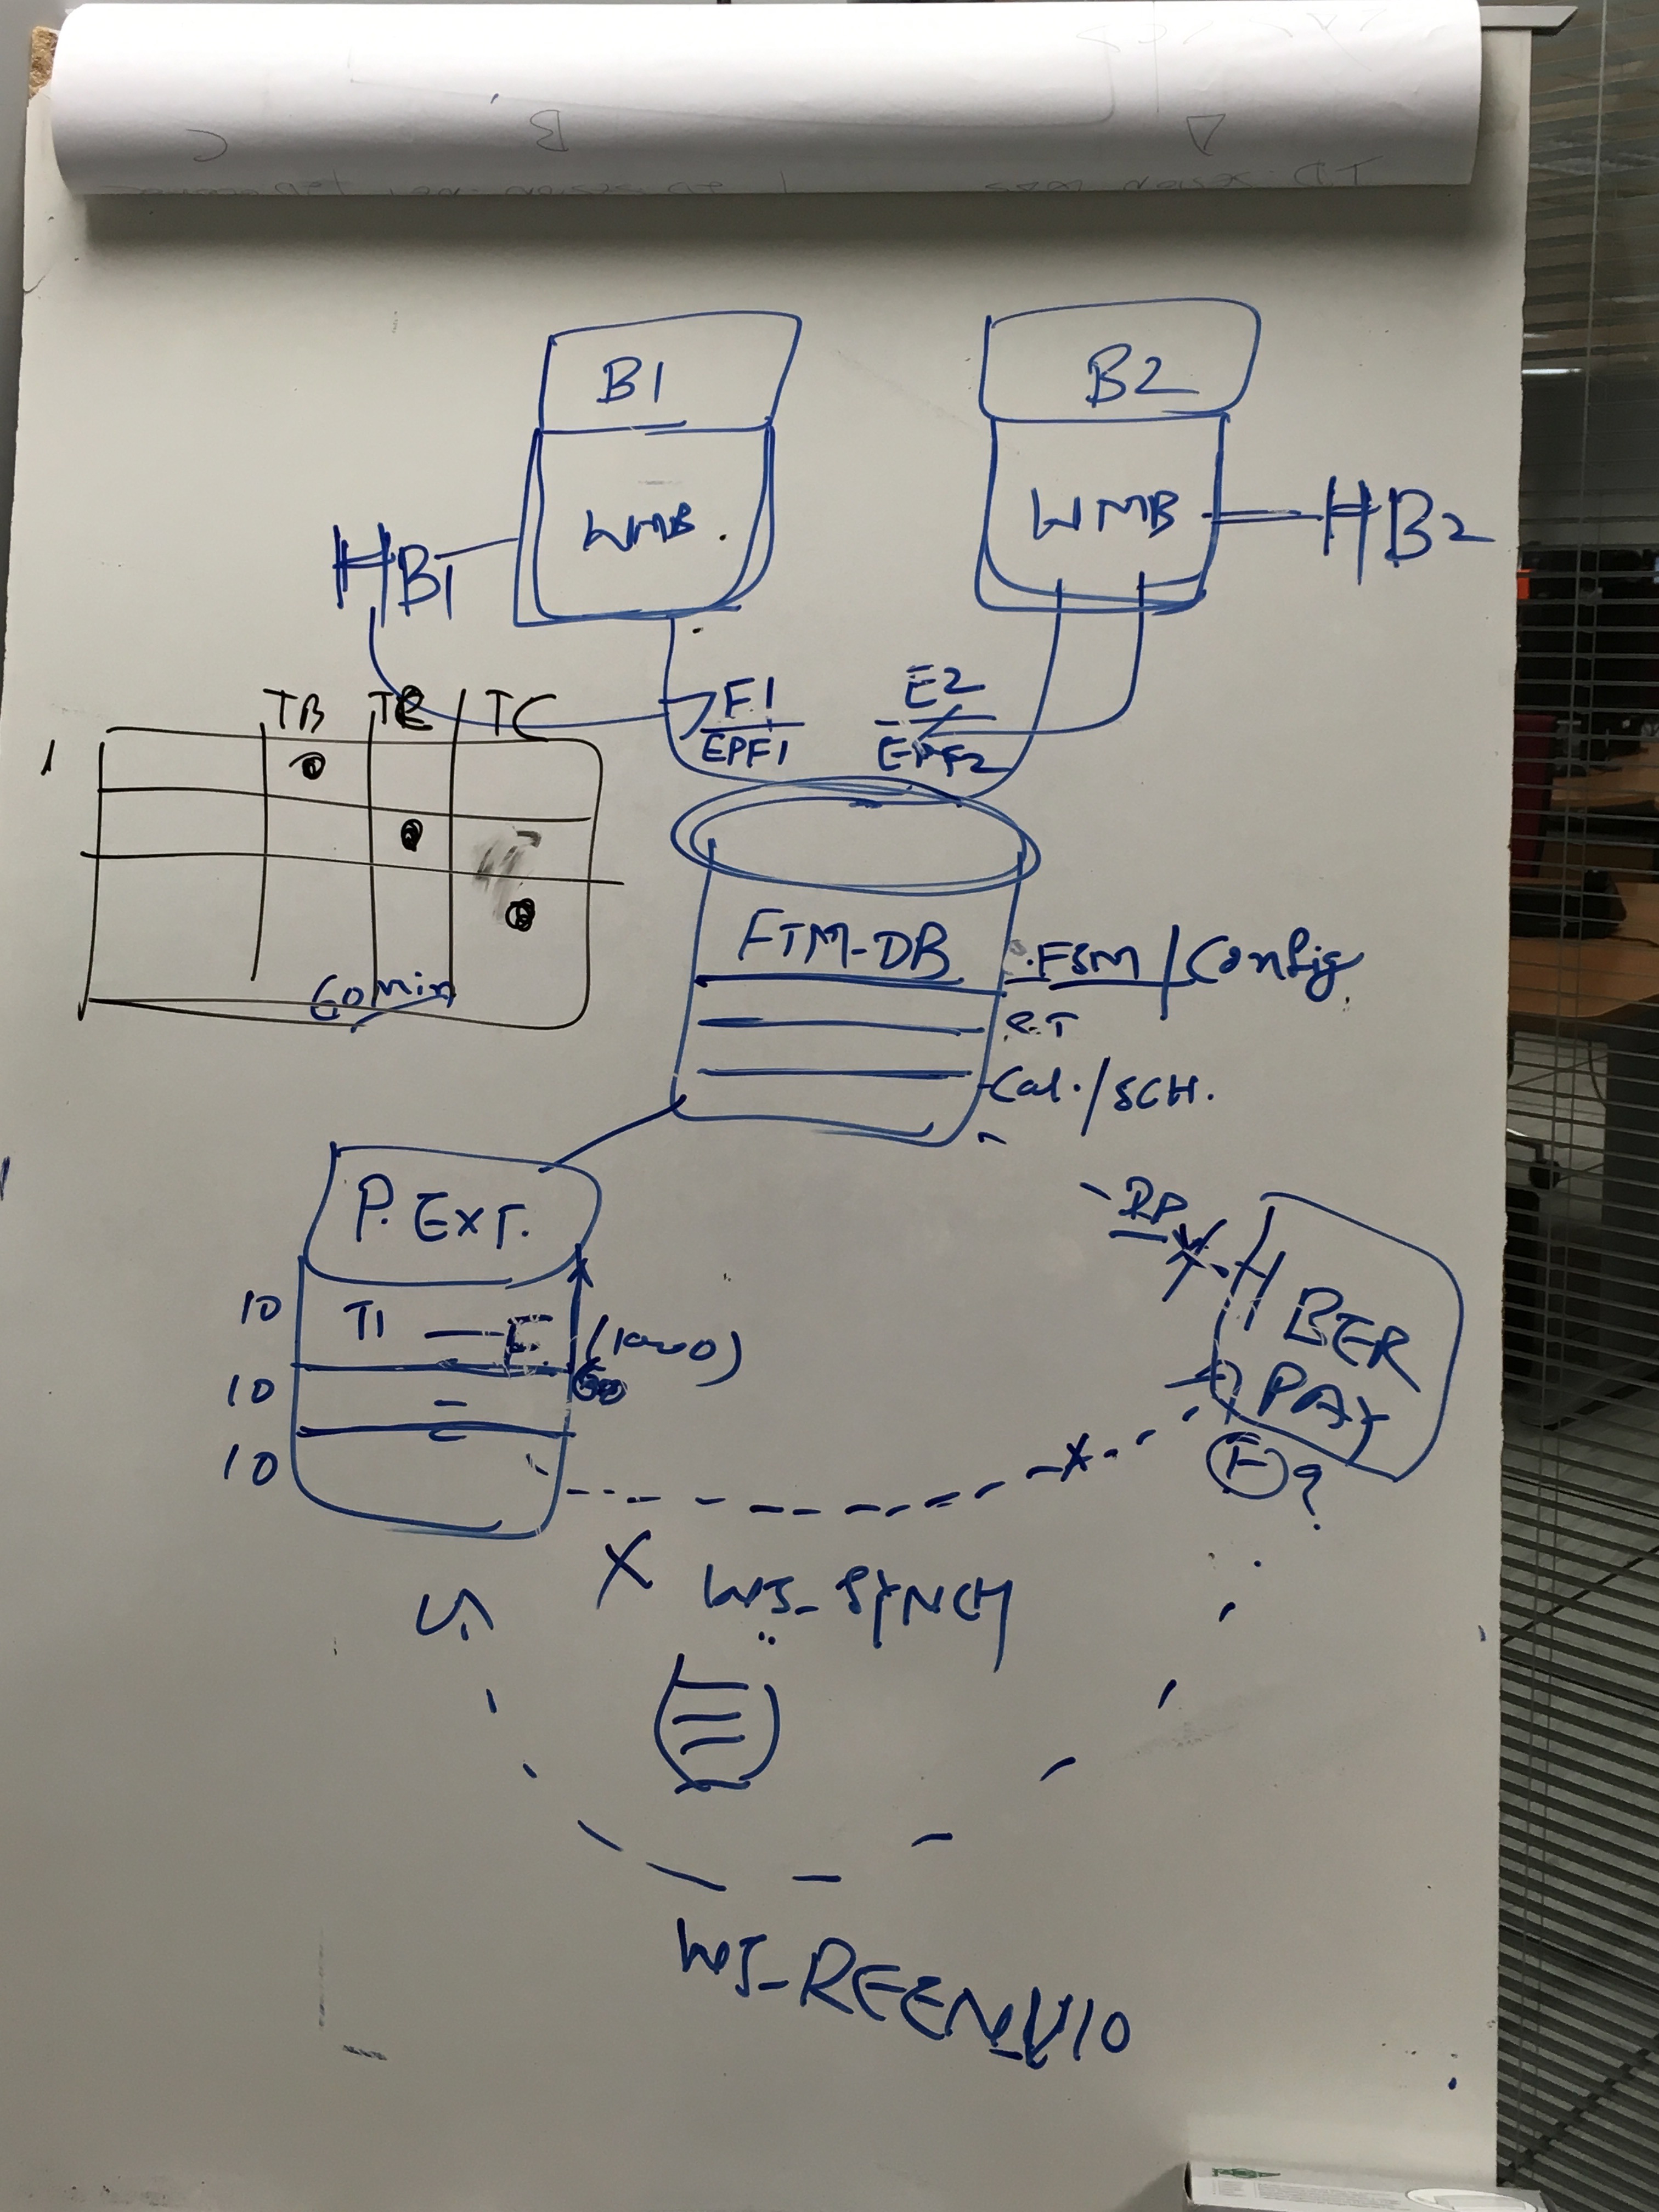 B1
B2
WMB.
WMB
B1
B2
E2
EPF1
EPF2
TB
TC
1
60 min
FTM-DB
FSM / Config
Cal. / SCH.
P. EXT.
10
T1
E
(1000)
10
10
RP
BER
PAY
F ?
X
WS_SYNCH
WS_REENVIO